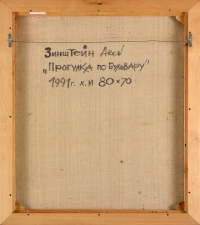 Зинштейн Арон
"Прогулка по бульвару"
1991г. х.м 80×70